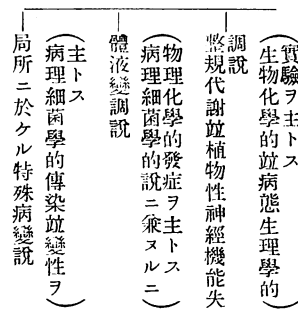 (實驗ヲ主トス
生物化學的竝病態生理學的
調說
整規代謝竝植物性神經機能失
(物理化學的發症ヲ主トス
病理細菌學的說ニ兼ヌルニ)
體液變調說
(主トス
病理細菌學的傳染竝變性ヲ)
局所ニ於ケル特殊病變說